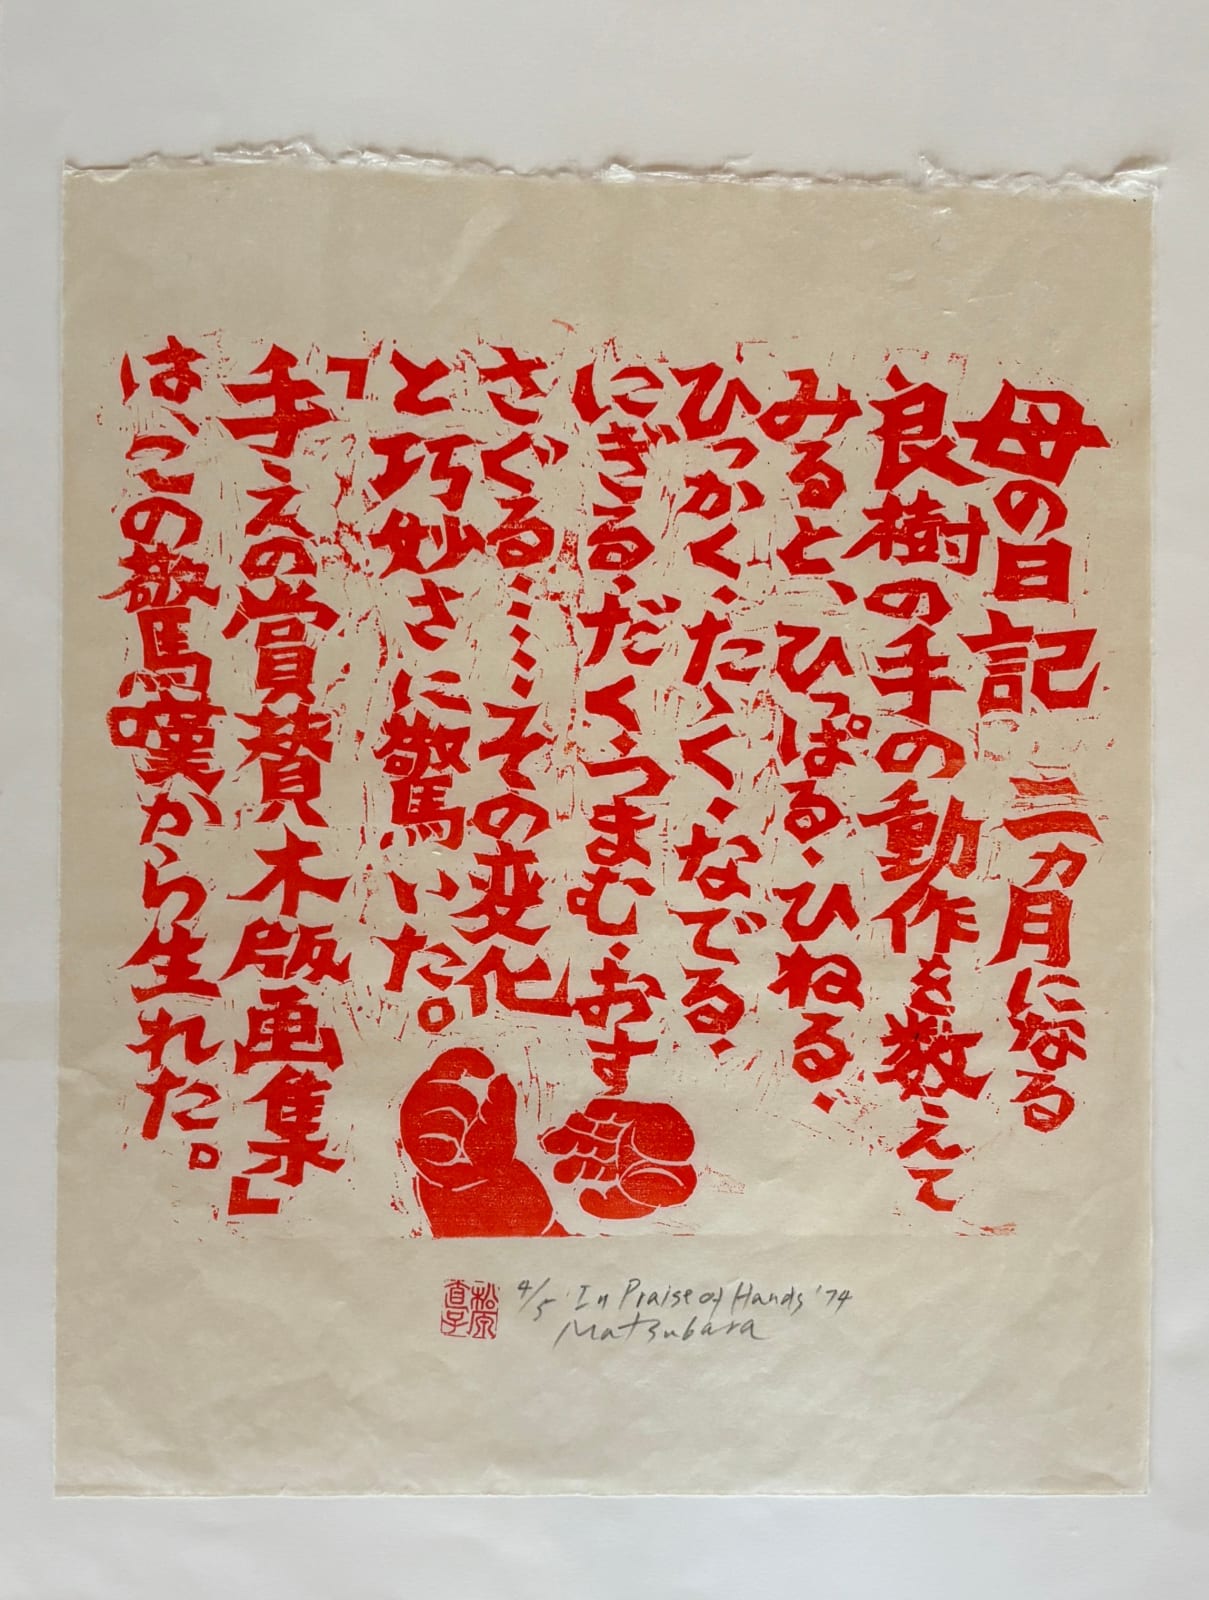 母の日記 三ヵ月になる
良樹の手の動作を数えて
みると、ひっぱる・ひねる・
ひっかく・たゝく・なでる・
にぎる・だく・つまむ・おす
さぐる……その変化
と巧妙さに驚いた。
「手えの賞賛木版画集」
は、この驚嘆から生れた。
松原直子
4/5 In Praise of Hands '74
Matsubara